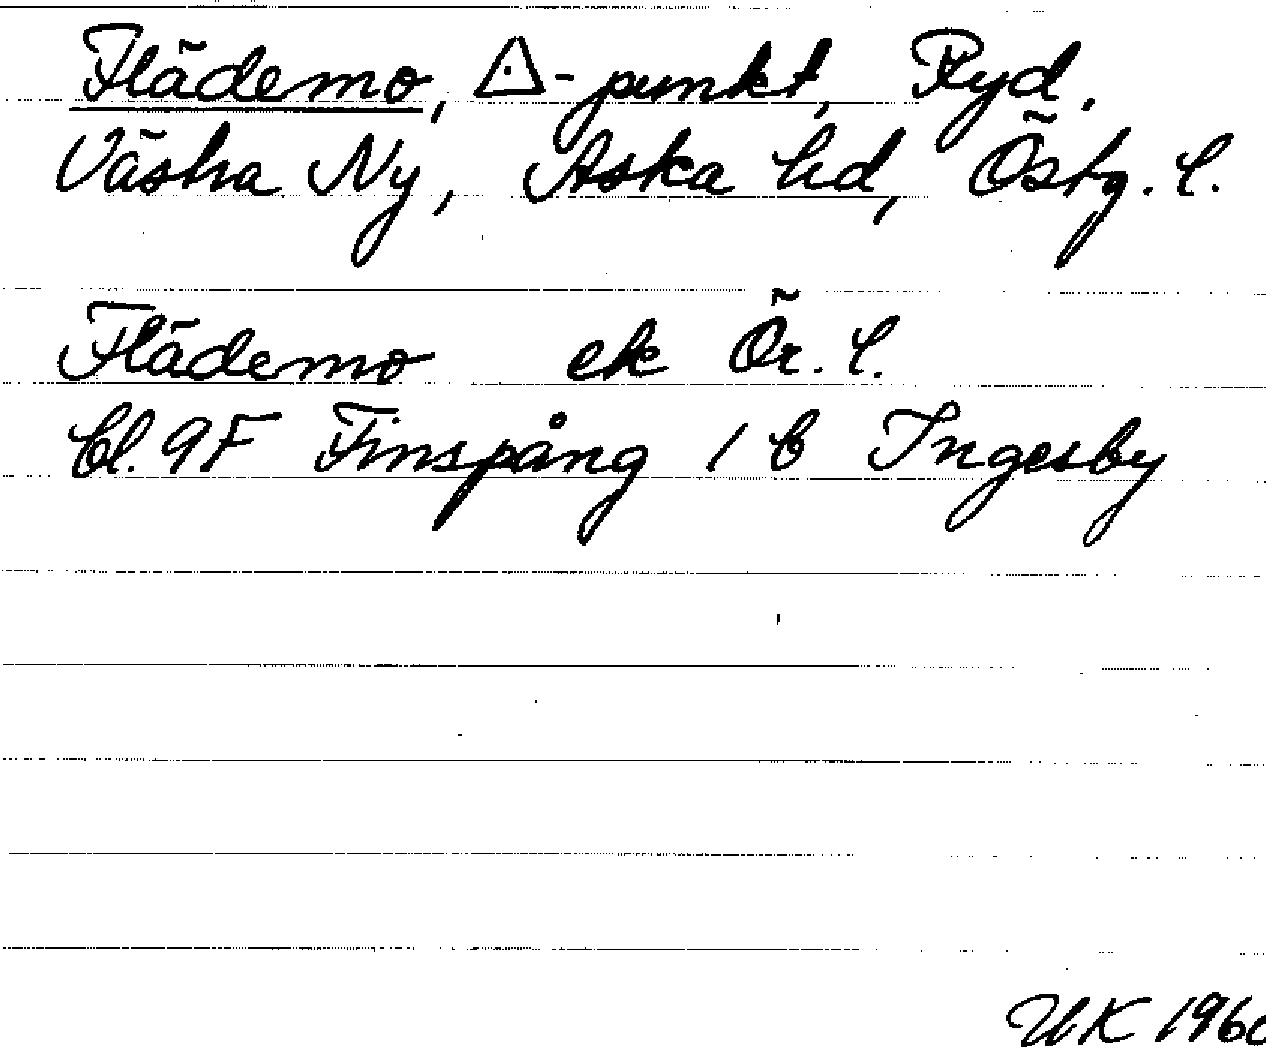 Flädemo, -punkt, Ryd.
Västra Ny, Aska hd, Östg. l.
Flädemo ek Ör. l.
bl. 9F Finspång / b Ingesby
UK 1960